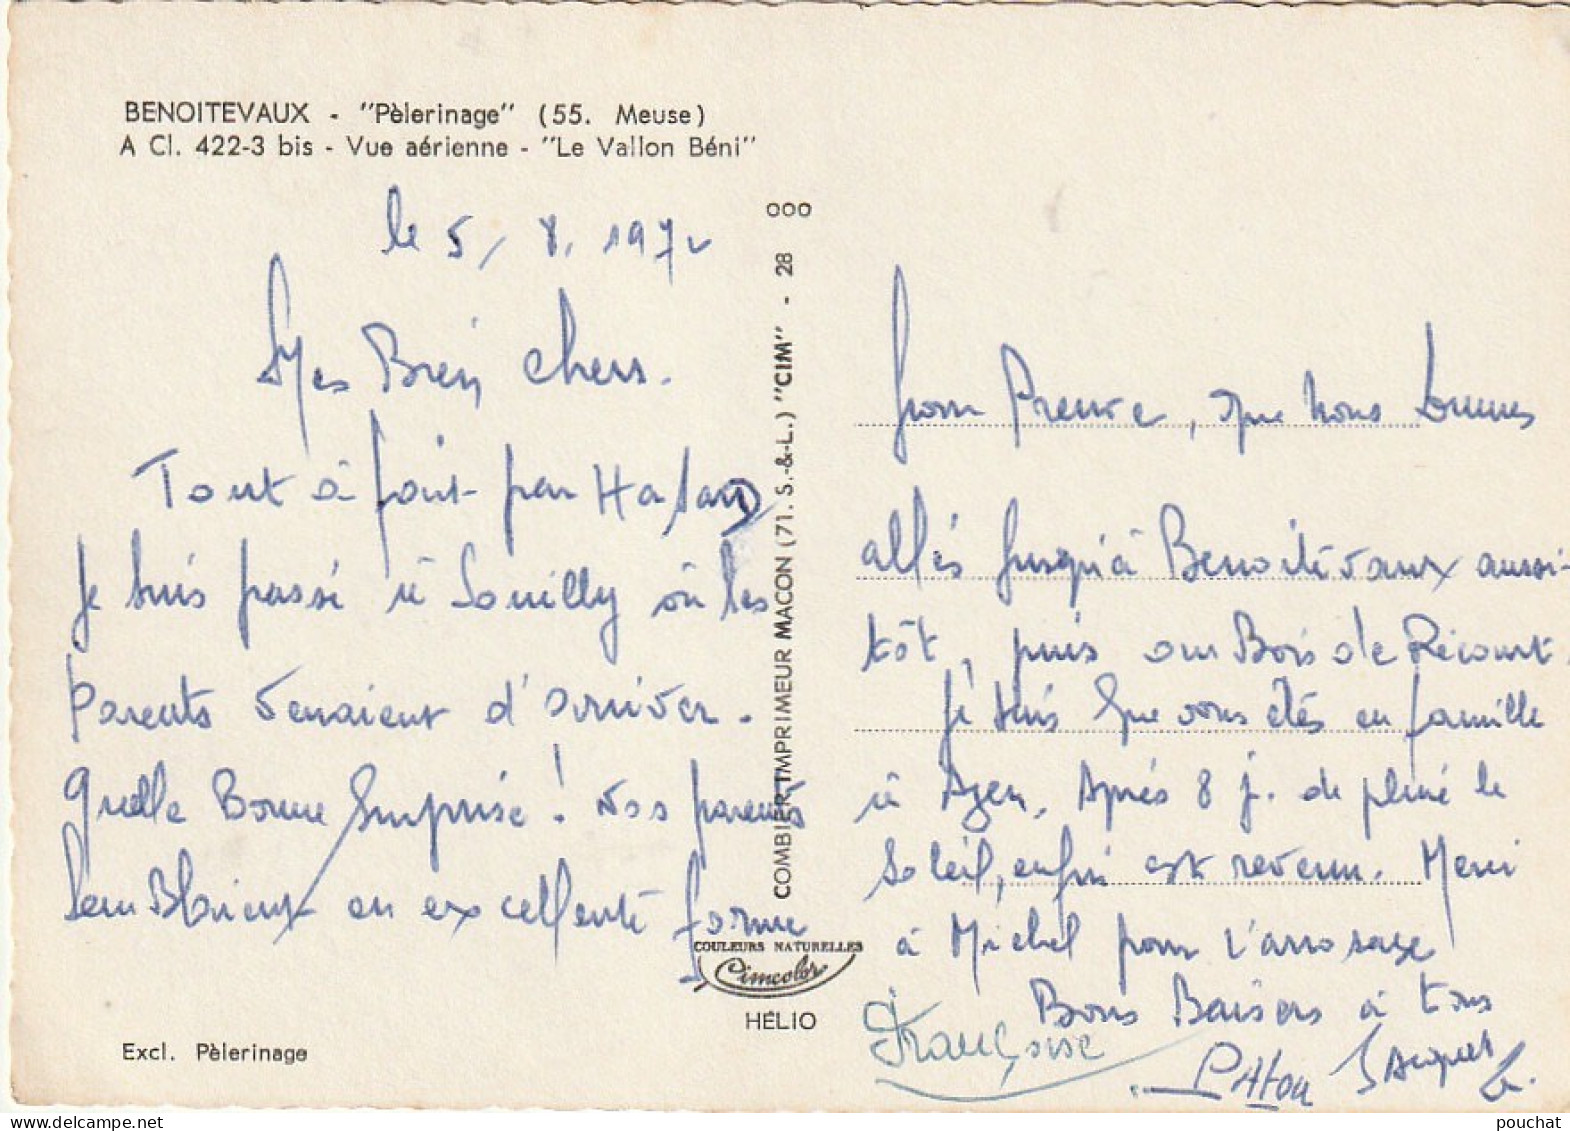 BENOITEVAUX - "Pèlerinage" (55. Meuse)
A Cl. 422-3 bis - Vue aérienne - "Le Vallon Béni"
le 5, 8, 1972
Mes Bien chers.
Tout à fait par Hasard
Je suis passé à Souilly où les
Parents venaient d'arriver.
Quelle Bonne Surprise! Vos parents
semblaient en excellente forme
Excl. Pèlerinage
COMBIER IMPRIMEUR MACON (71. S.-&-L.) "CIM" - 28 000
COULEURS NATURELLES
Cimcolor
HÉLIO
Preuve, que nous sommes
allés jusqu'à Benoitevaux aussi-
tôt, puis au Bois de Récourt.
Je sais que vous êtes en famille
à Agen. Après 8 j. de pluie le
Soleil, enfin est revenu. Merci
à Michel pour l'arrosage
Bons Baisers à tous
Françoise
Jacques
pouchat